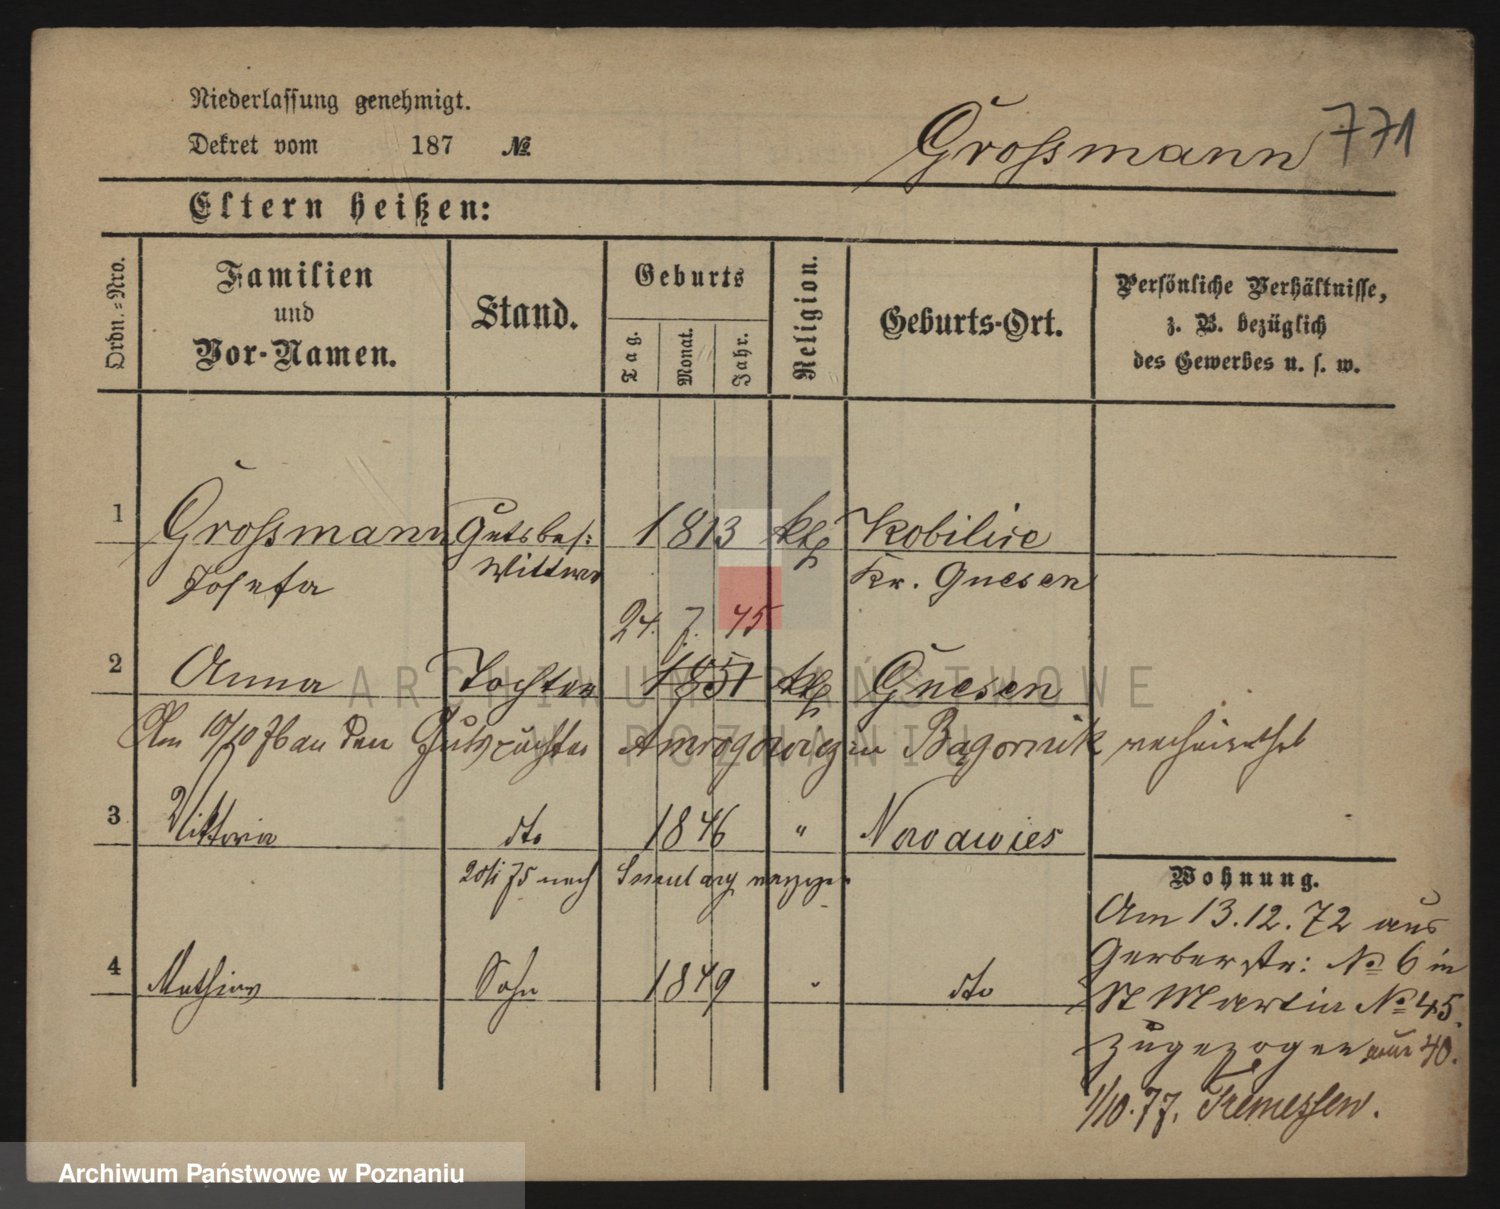 Niederlassung genehmigt.
Dekret vom 187 №
Grossmann 771
Eltern heißen:
Ordn.-Nro.
Familien und Vor-Namen.
Stand.
Geburts
Tag.
Monat.
Jahr.
Religion.
Geburts-Ort.
Persönliche Verhältnisse,
z. B. bezüglich
des Gewerbes u. s. w.
1 Grossmann Gutsbes: 1813 kth Kobilice
Josefa Wittwe Kr. Gnesen
24. 7. 45
2 Anna Tochter 1851 kth Gnesen
Am 10/10 76 an den Gutspächter in verheirathet
3 Viktoria dto 1846 " Nowawies
75 nach
4 Mathias Sohn 1849 " dto
Wohnung.
Am 13.12.72 aus
Gerberstr: № 6 in
St Martin № 45.
zugezogen 40.
1/10.77. Tremessen.
ARCHIWUM PAŃSTWOWE
W POZNANIU
Archiwum Państwowe w Poznaniu